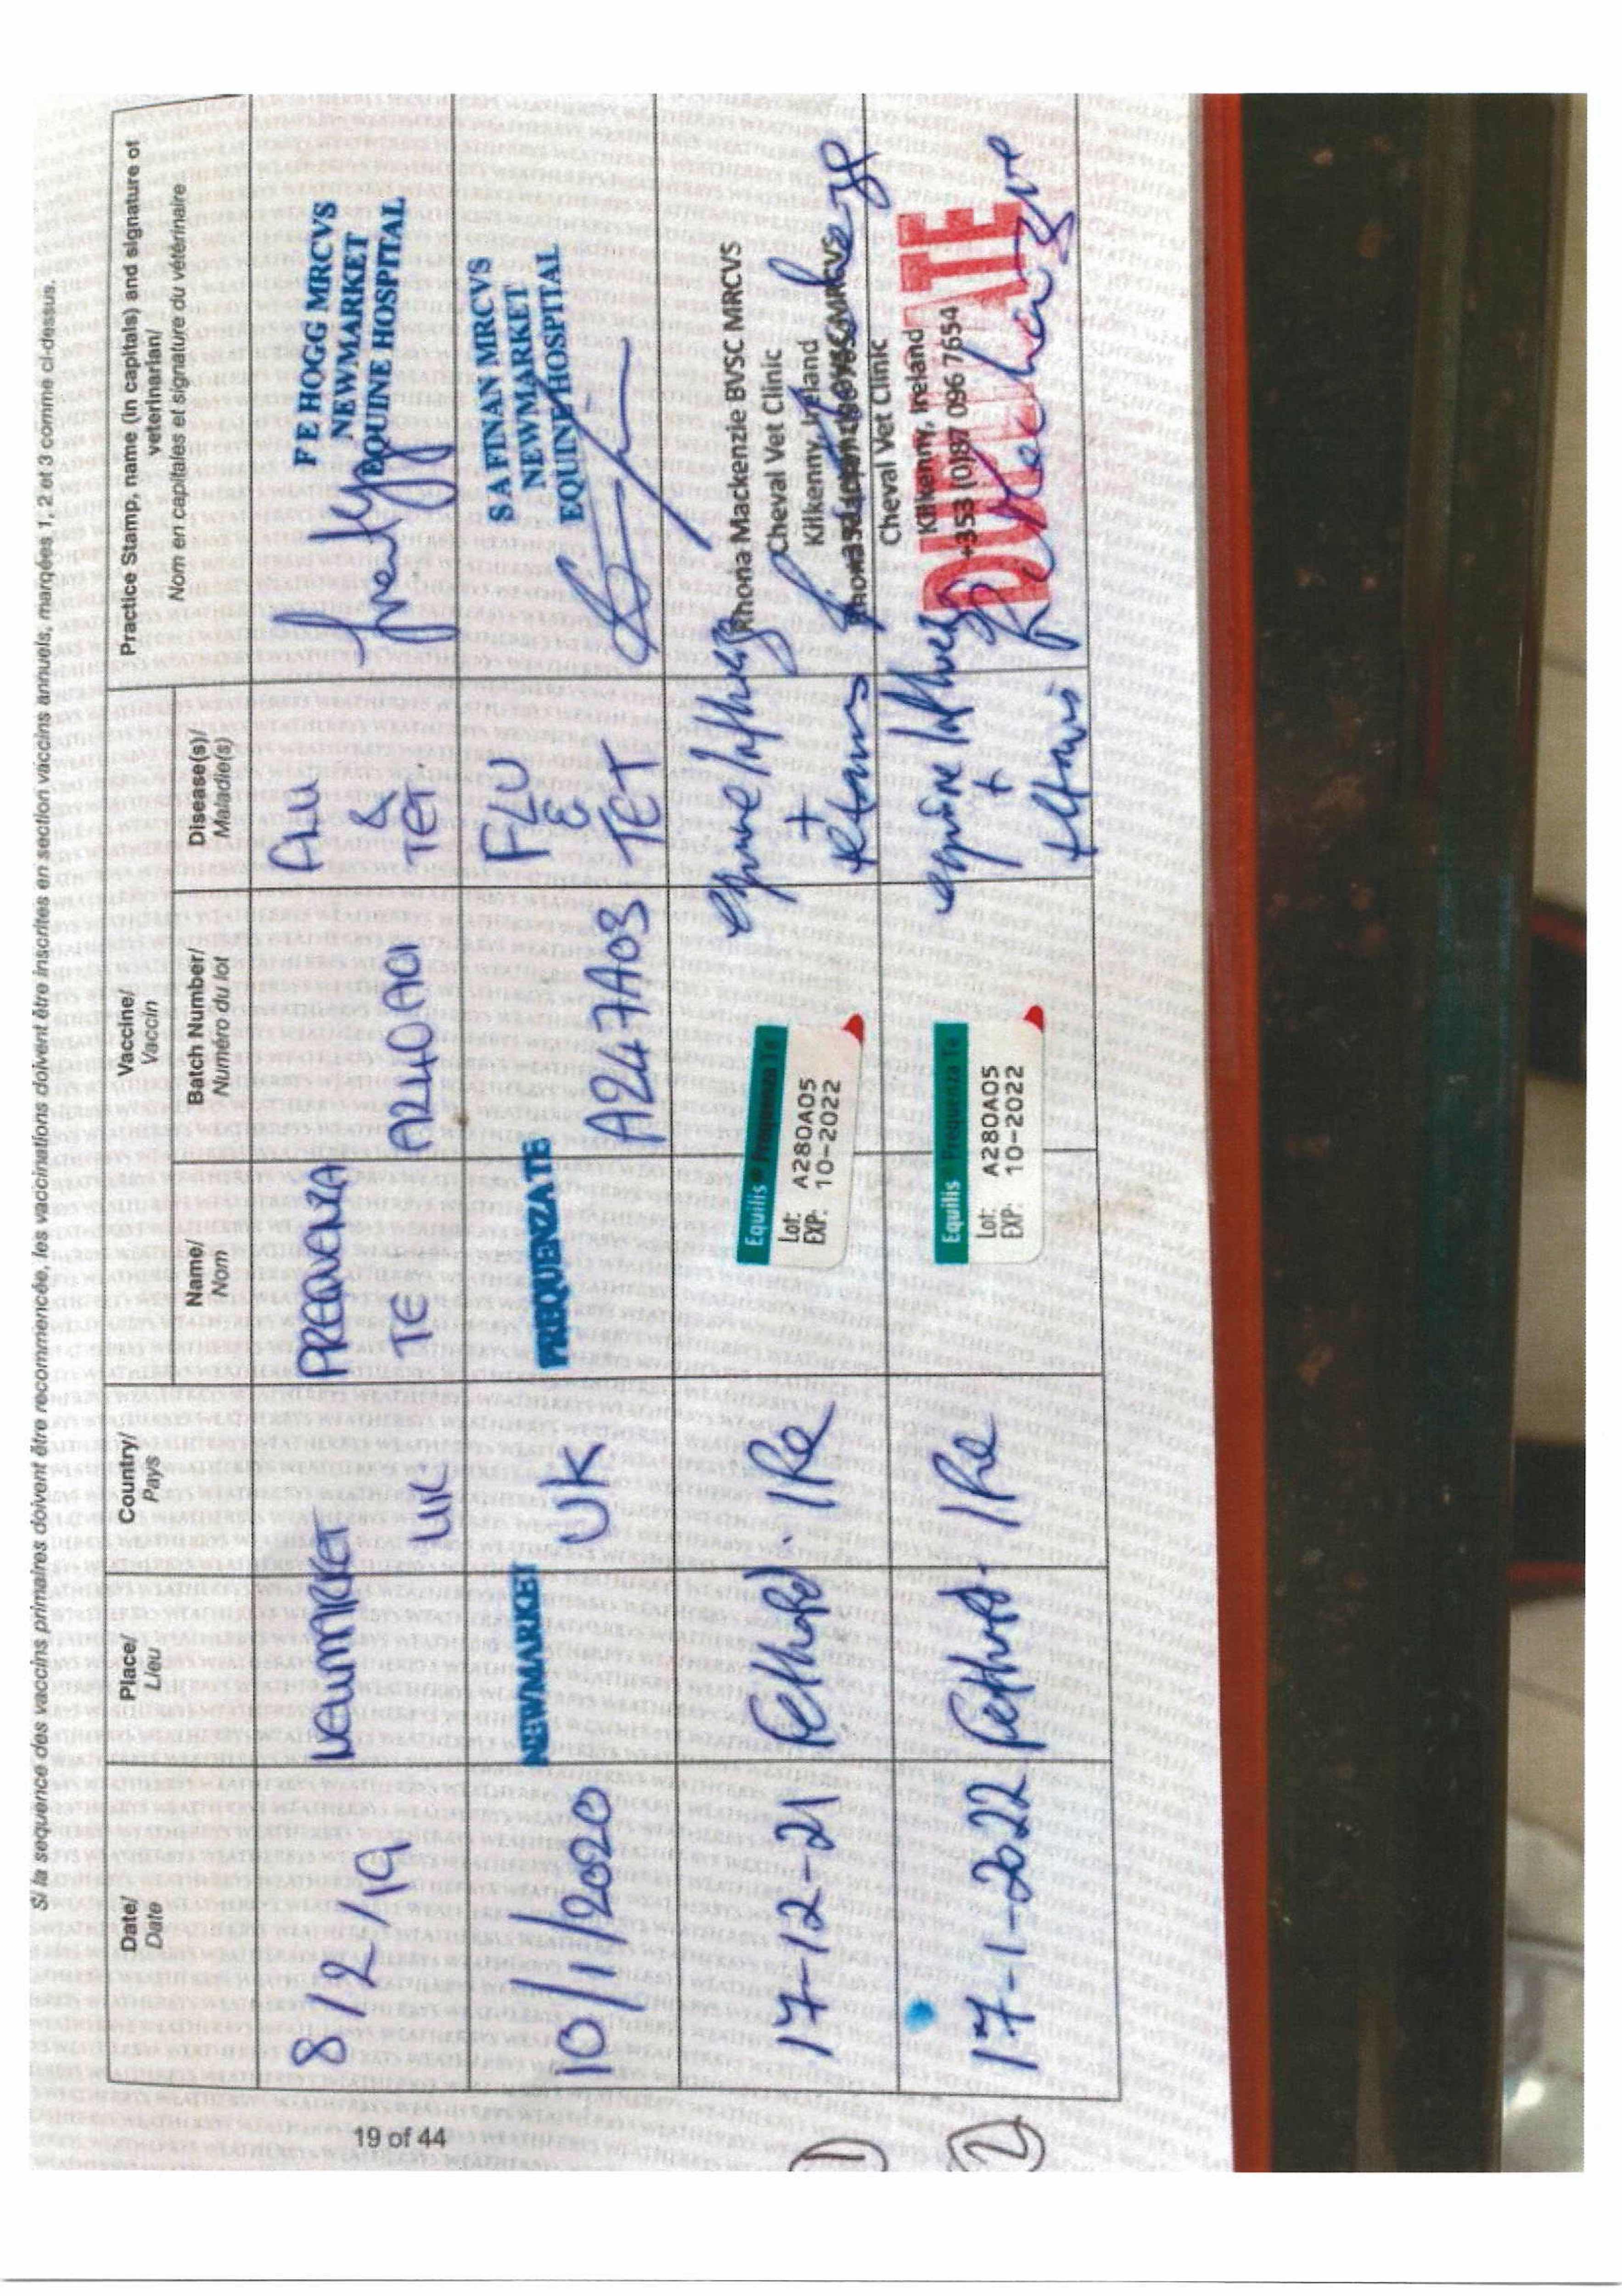 Si la sequence des vaccins primaires doivent être recommencée, les vaccinations doivent être inscrites en section vaccins annuels, marqées 1, 2 et 3 comme ci-dessus.
Date/
Date
Place/
Lieu
Country/
Pays
Vaccine/
Vaccin
Name/
Nom
Batch Number/
Numéro du lot
Disease(s)/
Maladie(s)
Practice Stamp, name (in capitals) and signature of
veterinarian/
Nom en capitales et signature du vétérinaire
8/2/19
NEWMARKET
UK
PREQUENZA
TE
A240A01
FLU
&
TET
F E HOGG MRCVS
NEWMARKET
EQUINE HOSPITAL
10/1/2020
NEWMARKET
UK
PREQUENZA TE
A247A03
FLU
&
TET
S A FINAN MRCVS
NEWMARKET
EQUINE HOSPITAL
1
17-12-21
Fethard.
IRe
Equilis® Prequenza Te
Lot: A280A05
EXP: 10-2022
equine Influenza
+
tetanus
Rhona Mackenzie BVSC MRCVS
Cheval Vet Clinic
Kilkenny, Ireland
2
17-1-2022
Fethard.
IRe
Equilis® Prequenza Te
Lot: A280A05
EXP: 10-2022
equine Influenza
+
tetanus
Rhona Mackenzie BVSC MRCVS
Cheval Vet Clinic
Kilkenny, Ireland
+353 (0)87 096 7654
DUPLICATE
19 of 44